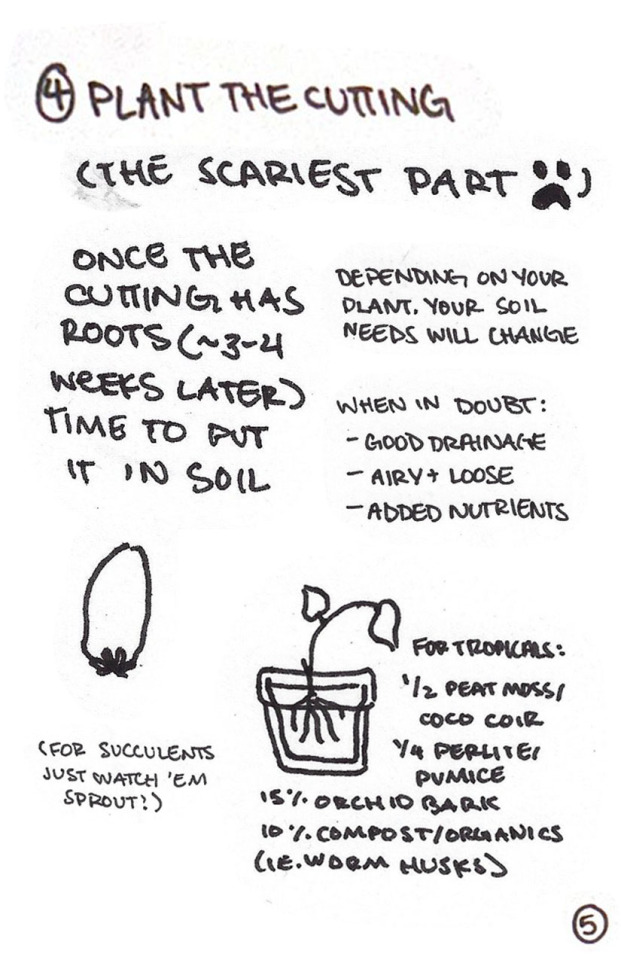 4 PLANT THE CUTTING
(THE SCARIEST PART )
ONCE THE
CUTTING HAS
ROOTS (~3-4
WEEKS LATER)
TIME TO PUT
IT IN SOIL
DEPENDING ON YOUR
PLANT. YOUR SOIL
NEEDS WILL CHANGE
WHEN IN DOUBT:
- GOOD DRAINAGE
- AIRY + LOOSE
- ADDED NUTRIENTS
(FOR SUCCULENTS
JUST WATCH 'EM
SPROUT!)
FOR TROPICALS:
1/2 PEAT MOSS/
COCO COIR
1/4 PERLITE/
PUMICE
15% ORCHID BARK
10% COMPOST/ORGANICS
(IE. WORM HUSKS)
5